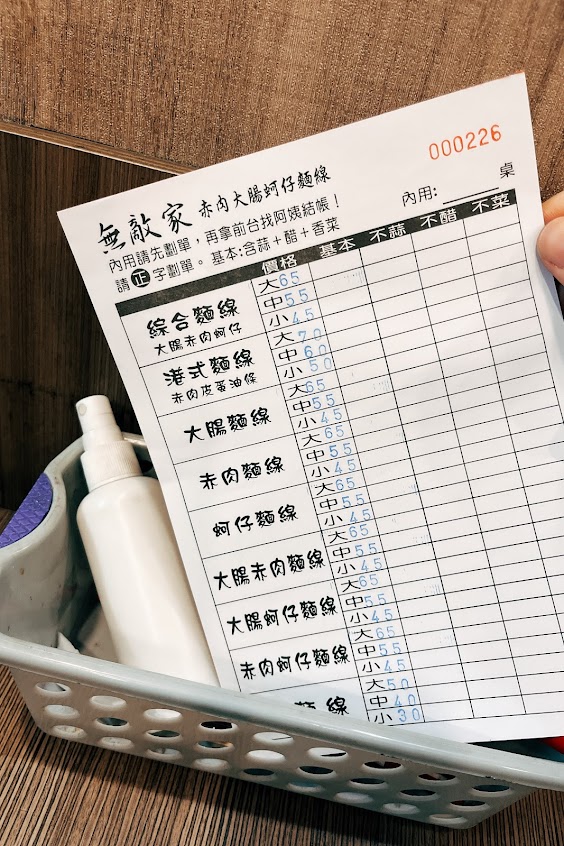 000226
無敵家 赤肉大腸蚵仔麵線
內用請先劃單，再拿前台找阿姨結帳！
內用: 桌
請正字劃單。基本:含蒜+醋+香菜
價格 基本 不蒜 不醋 不菜
綜合麵線 大65
大腸赤肉蚵仔 中55
小45
港式麵線 大70
赤肉皮蛋油條 中60
小50
大腸麵線 大65
中55
小45
赤肉麵線 大65
中55
小45
蚵仔麵線 大65
中55
小45
大腸赤肉麵線 大65
中55
小45
大腸蚵仔麵線 大65
中55
小45
赤肉蚵仔麵線 大65
中55
小45
麵線 大50
中40
小30